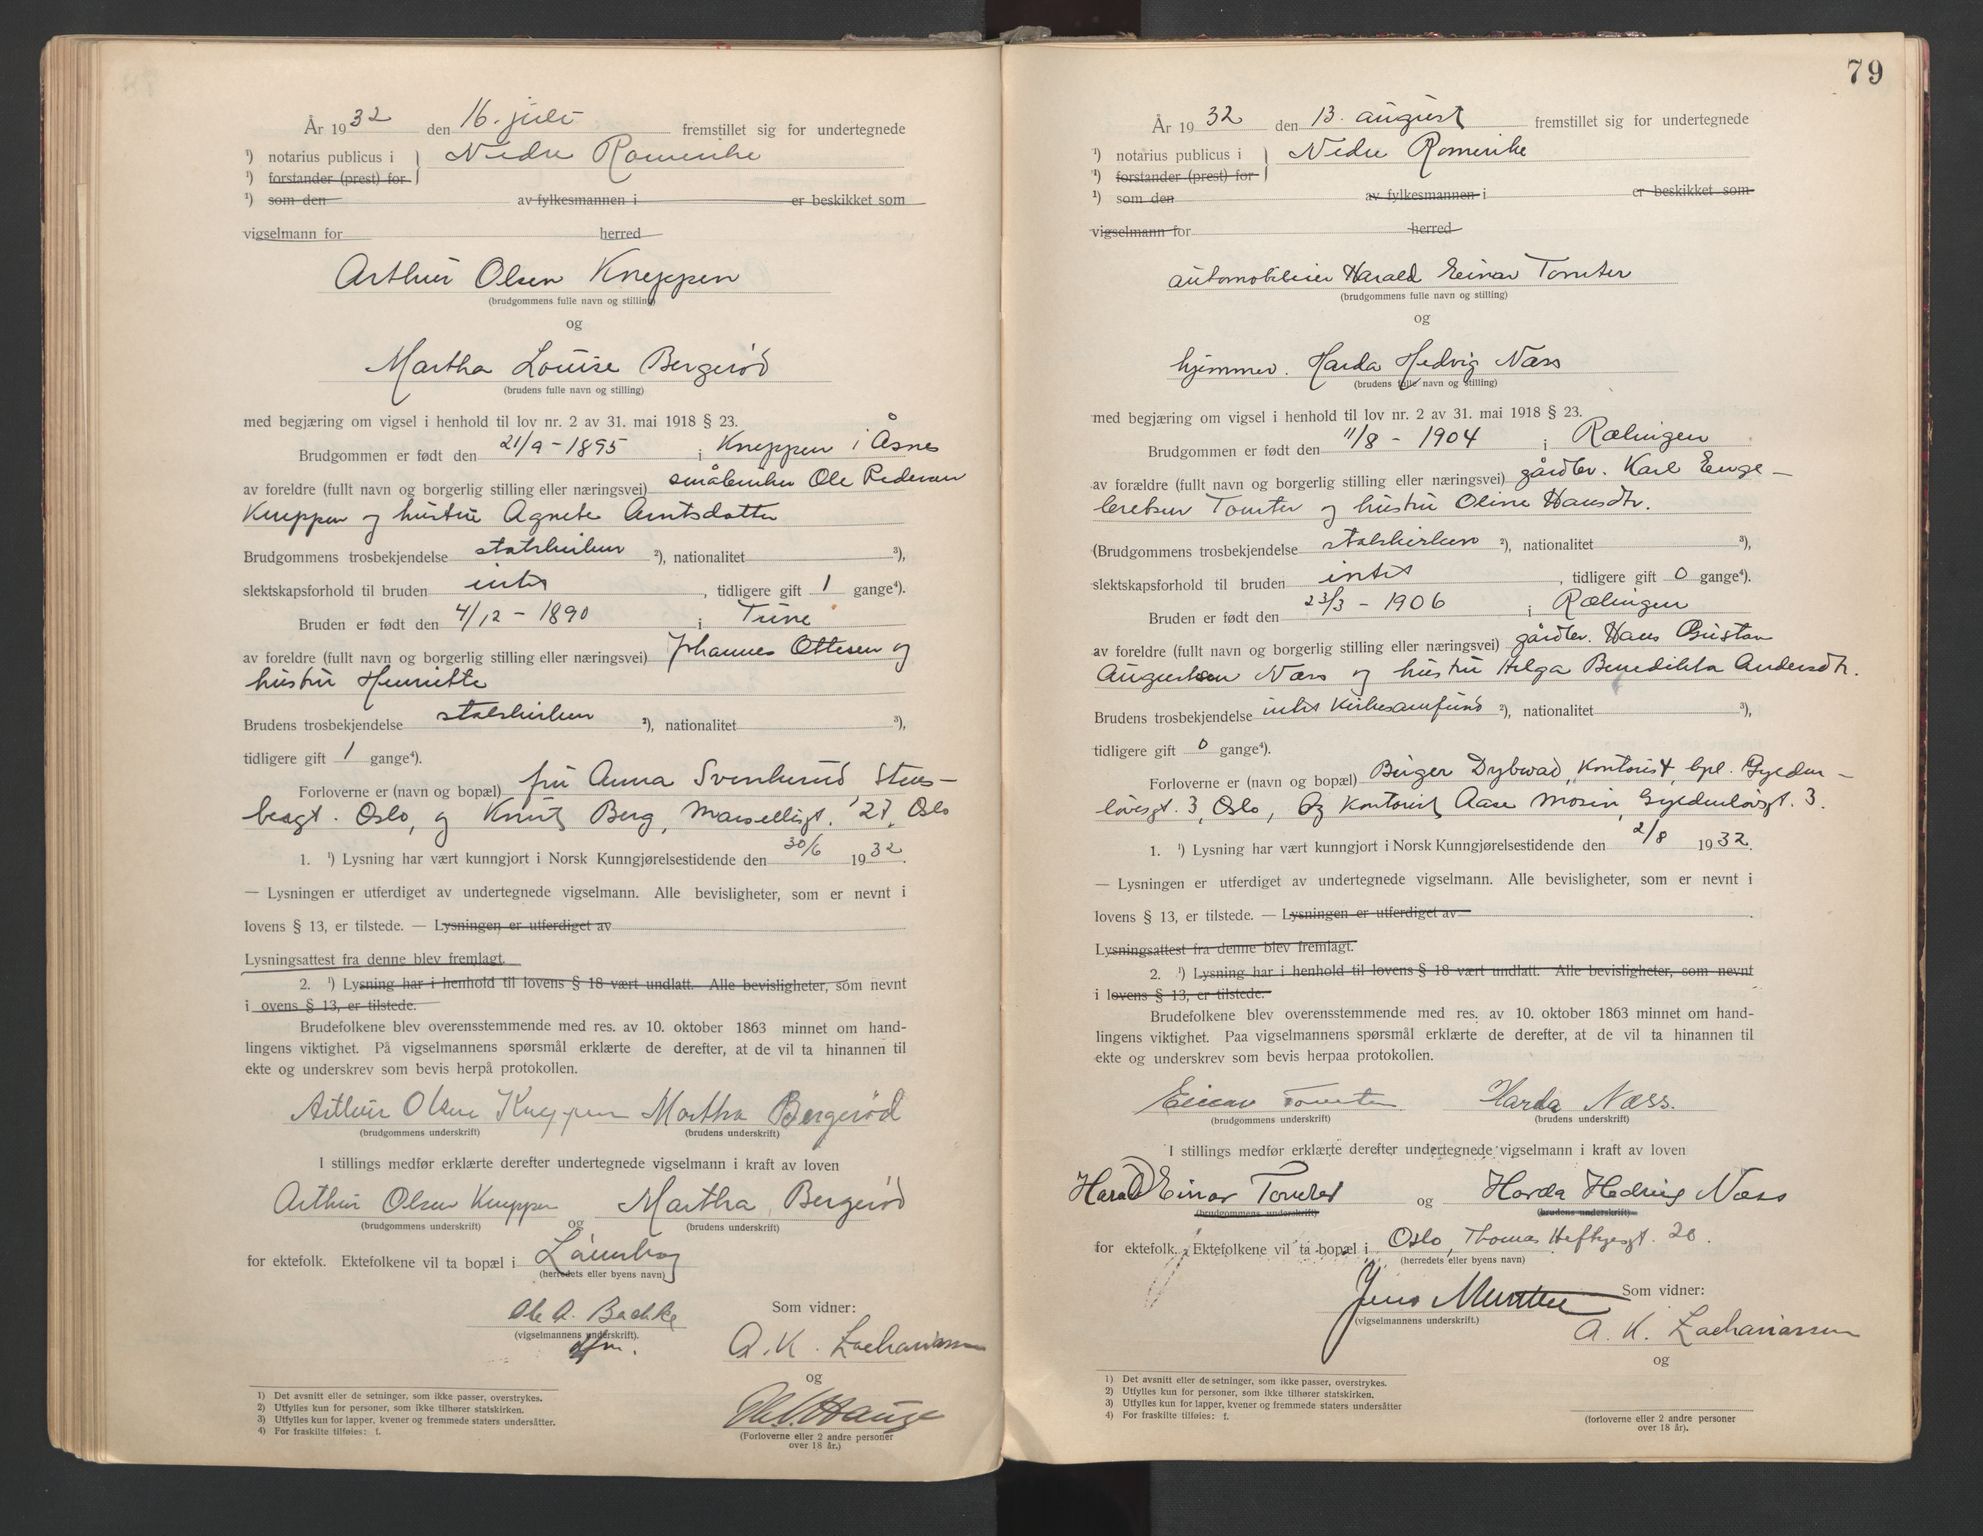 År 1932 den 16. juli fremstillet sig for undertegnede
¹) notarius publicus i } Nedre Romerike
¹) forstander (prest) for
¹) som den av fylkesmannen i er beskikket som
vigselmann for herred
Arthur Olsen Kneppen
(brudgommens fulle navn og stilling)
og
Martha Louise Bergerød
(brudens fulle navn og stilling)
med begjæring om vigsel i henhold til lov nr. 2 av 31. mai 1918 § 23.
Brudgommen er født den 21/9 - 1895 i Kneppen i Åsnes
av foreldre (fullt navn og borgerlig stilling eller næringsvei) småbruker Ole Pedersen
Kneppen og hustru Agnete Arntsdatter
Brudgommens trosbekjendelse statskirken ²), nationalitet ³),
slektskapsforhold til bruden intet , tidligere gift 1 gange⁴).
Bruden er født den 4/12 - 1890 i Tune
av foreldre (fullt navn og borgerlig stilling eller næringsvei) Johannes Ottesen og
hustru Henriette
Brudens trosbekjendelse statskirken ²), nationalitet ³),
tidligere gift 1 gange⁴).
Forloverne er (navn og bopæl) fru Anna Svenkerud, Stens-
beggt. Oslo, og Knut Berg, Marselisgt. 27, Oslo
1. ¹) Lysning har vært kunngjort i Norsk Kunngjørelsestidende den 30/6 1932.
— Lysningen er utferdiget av undertegnede vigselmann. Alle bevisligheter, som er nevnt i
lovens § 13, er tilstede. — Lysningen er utferdiget av
Lysningsattest fra denne blev fremlagt.
2. ¹) Lysning har i henhold til lovens § 18 vært undlatt. Alle bevisligheter, som nevnt
i ovens § 13, er tilstede.
Brudefolkene blev overensstemmende med res. av 10. oktober 1863 minnet om hand-
lingens viktighet. På vigselmannens spørsmål erklærte de derefter, at de vil ta hinannen til
ekte og underskrev som bevis herpå protokollen.
Arthur Olsen Kneppen Martha Bergerød
(brudgommens underskrift) (brudens underskrift)
I stillings medfør erklærte derefter undertegnede vigselmann i kraft av loven
Arthur Olsen Kneppen og Martha Bergerød
(brudgommens underskrift) (brudens underskrift)
for ektefolk. Ektefolkene vil ta bopæl i Lørenskog
(herredets eller byens navn)
Ole A. Bachke Som vidner:
(vigselmannens underskrift).
A. K. Zachariassen
og
Ole Hauge
(Forloverne eller 2 andre personer
over 18 år.)
1) Det avsnitt eller de setninger, som ikke passer, overstrykes.
2) Utfylles kun for personer, som ikke tilhører statskirken.
3) Utfylles kun for lapper, kvener og fremmede staters undersåtter.
4) For fraskilte tilføies: f.
79
År 1932 den 13. august fremstillet sig for undertegnede
¹) notarius publicus i } Nedre Romerike
¹) forstander (prest) for
¹) som den av fylkesmannen i er beskikket som
vigselmann for herred
automobileier Harald Einar Tomter
(brudgommens fulle navn og stilling)
og
hjemmev. Harda Hedvig Næss
(brudens fulle navn og stilling)
med begjæring om vigsel i henhold til lov nr. 2 av 31. mai 1918 § 23.
Brudgommen er født den 11/8 - 1904 i Rælingen
av forældre (fullt navn og borgerlig stilling eller næringsvei) gårdbr. Karl Enge-
bretsen Tomter og hustru Oline Hansdtr.
(Brudgommens trosbekjendelse statskirken ²), nationalitet ³),
slektskapsforhold til bruden intet , tidligere gift 0 gange⁴).
Bruden er født den 23/3 - 1906 i Rælingen
av foreldre (fullt navn og borgerlig stilling eller næringsvei) gårdbr. Hans Gustav
Augustsen Næss og hustru Helga Benedikta Andersdtr.
Brudens trosbekjendelse intet kirkesamfund ²), nationalitet ³),
tidligere gift 0 gange⁴).
Forloverne er (navn og bopæl) Birger Dybwad, kontorist, bpl. Gylden-
løvesgt. 3, Oslo, og kontorist Aase Mosin, Gyldenløvsgt. 3.
1. ¹) Lysning har vært kunngjort i Norsk Kunngjørelsestidende den 2/8 1932.
— Lysningen er utferdiget av undertegnede vigselmann. Alle bevisligheter, som er nevnt i
lovens § 13, er tilstede. — Lysningen er utferdiget av
Lysningsattest fra denne blev fremlagt.
2. ¹) Lysning har i henhold til lovens § 18 vært undlatt. Alle bevisligheter, som nevnt
i lovens § 13, er tilstede.
Brudefolkene blev overensstemmende med res. av 10. oktober 1863 minnet om hand-
lingens viktighet. Paa vigselmannens spørsmål erklærte de derefter, at de vil ta hinannen til
ekte og underskrev som bevis herpaa protokollen.
Einar Tomter Harda Næss.
(brudgommens underskrift) (brudens underskrift)
I stillings medfør erklærte derefter undertegnede vigselmann i kraft av loven
Harald Einar Tomter og Harda Hedvig Næss
(brudgommens underskrift) (brudens underskrift)
for ektefolk. Ektefolkene vil ta bopæl i Oslo, Thomas Heftyesgt. 20.
(herredets eller byens navn)
Jens Som vidner:
(vigselmannens underskrift.)
A. K. Zachariassen
og
(forloverne eller 2 andre personer
over 18 år).
1) Det avsnitt eller de setninger, som ikke passer, overstrykes.
2) Utfylles kun for personer, som ikke tilhører statskirken.
3) Utfylles kun for lapper, kvener og fremmede staters undersåtter
4) For fraskilte tilføies: f.